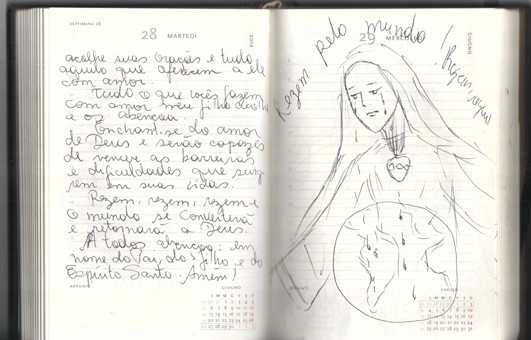 SETTIMANA 26
28 MARTEDÌ
GIUGNO 2016
acolhe suas orações e tudo
aquilo que oferecem a ele
com amor.
Tudo o que vocês fazem
com amor meu filho acolhe
e os abençoa.
Enchant-se do amor
de Deus e serão capazes
de vencer as barreiras
e dificuldades que surg
rem em suas vidas.
Rezem, rezem, rezem e
o mundo se converterá
e retornará a Deus.
A todos abençoo: em
nome do Pai, do Filho e do
Espírito Santo. Amém!
APPUNTI
GIUGNO
29 MERCOLEDÌ
GIUGNO
Rezem pelo mundo!
APPUNTI
GIUGNO